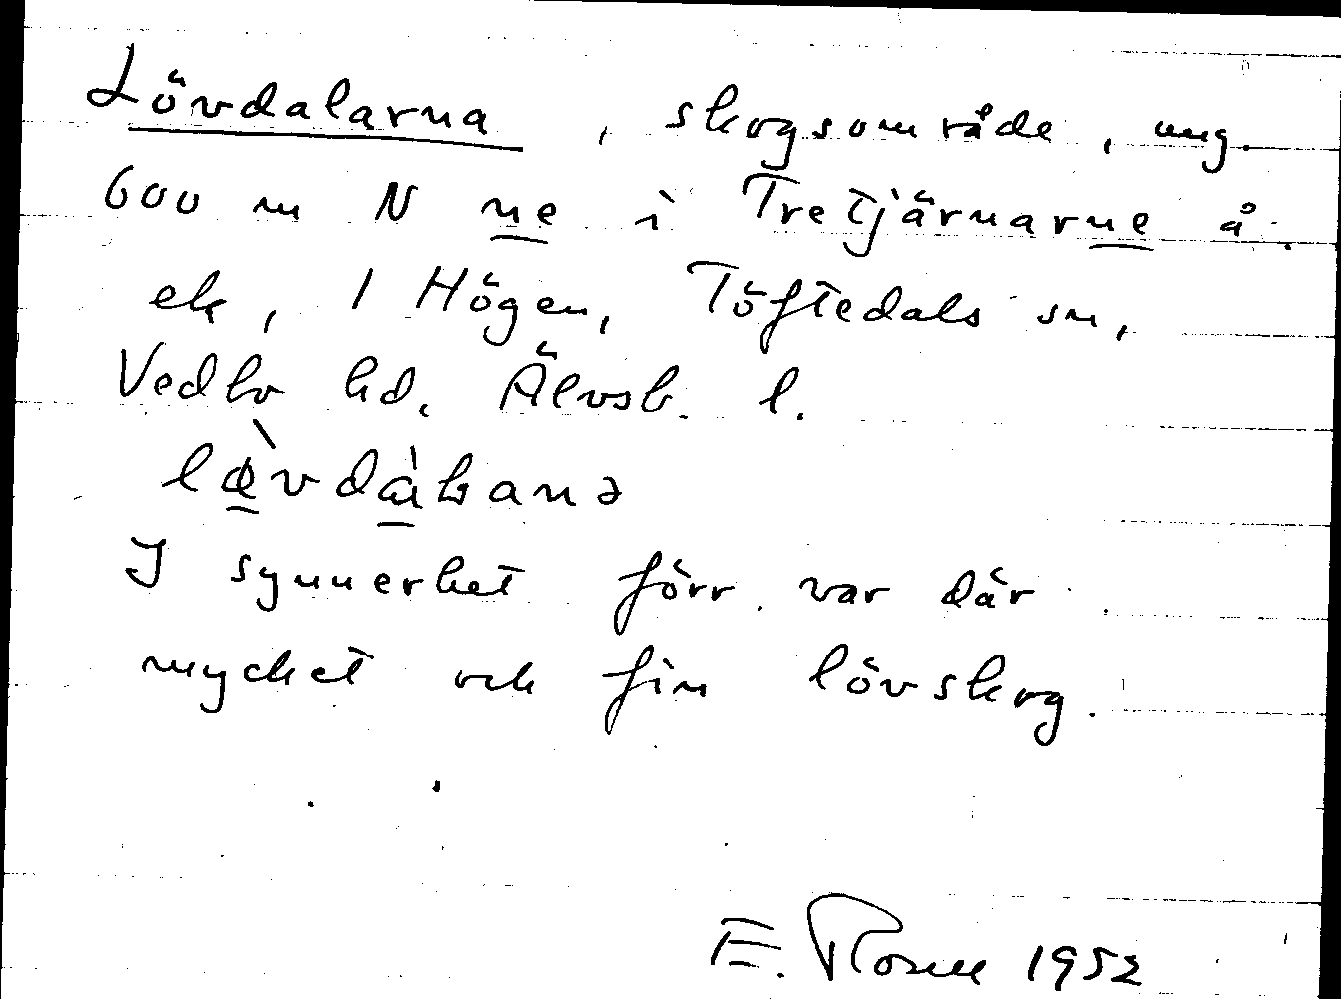 Lövdalarna, skogsområde, ung.
600 m N ne i Tretjärnarne å
ek, 1 Högen, Töftedals sn,
Vedbo hd. Älvsb. l.
I synnerhet förr var där
mycket och fin lövskog.
E. 1952